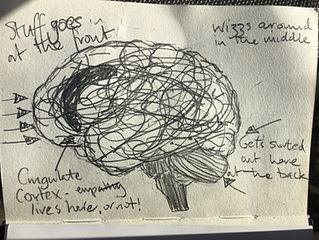 Stuff goes in
at the front
Wizzs around
in the middle
Gets sorted
out here
at the back
Cingulate
Cortex - empathy
lives here, or not!